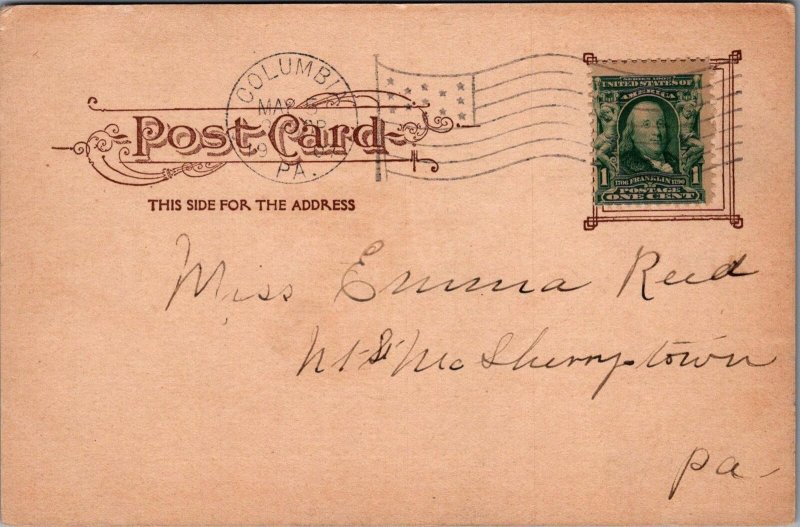 COLUMBIA
MAR
PA.
Post Card
THIS SIDE FOR THE ADDRESS
SERIES 1902
UNITED STATES OF
AMERICA
1 1706 FRANKLIN 1790 1
POSTAGE
ONE CENT
Miss Emma Reed
McSherrytown
Pa